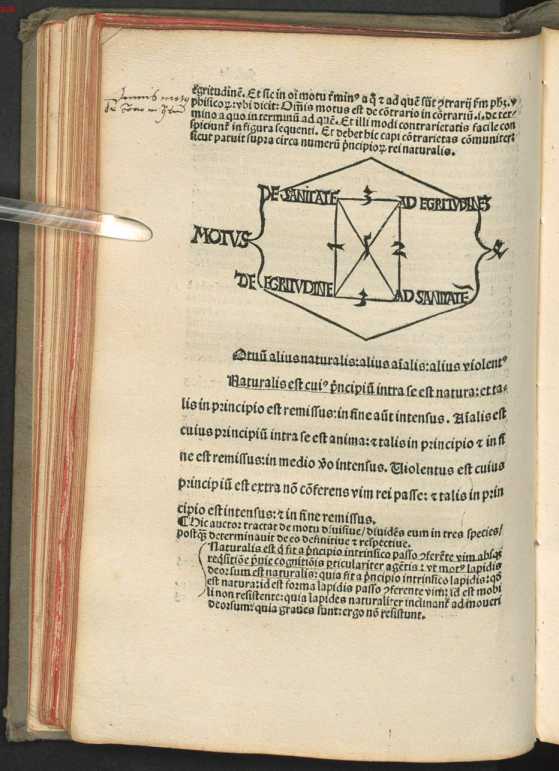 egritudinē. Et sic in oī motu t̄minꝰ a q̄ ⁊ ad quē sūt ꝯtrarij ẜm phꝫ. v
phisicoꝝ: vbi dicit: Om̄is motus est de cōtrario in cōtrariū .i. de ter⸗
mino a quo in terminū ad quē. Et illi modi contrarietatis facile con
spiciunt̄ in figura sequenti. Et debet hic capi cōtrarietas cōmuniter:
sicut patuit supra circa numerū p̄ncipioꝝ rei naturalis.
DE SANITATE 3 AD EGRITVDINEȜ
MOTVS 1 5 2
DE EGRITVDINE 3 AD SANITATĒ
Otuū alius naturalis: alius aīalis: alius violentꝰ
Naturalis est cuiꝰ p̄ncipiū intra se est natura: et ta⸗
lis in principio est remissus: in fine aūt intensus. Aīalis est
cuius principiū intra se est anima: ⁊ talis in principio ⁊ in fi
ne est remissus: in medio v̄o intensus. Uiolentus est cuius
principiū est extra nō cōferens vim rei passe: ⁊ talis in prin
cipio est intensus: ⁊ in fine remissus.
¶ Hic auctor tractat de motu diuisiue/ diuidēs eum in tres species/
postq̄ determinauit de eo definitiue ⁊ respectiue.
Naturalis est q̄ fit a p̄ncipio intrinsico passo ꝯferēte vim absqꝫ
reqsitiōe p̄uie cognitiōis pticulariter agētis: vt motꝰ lapidis
deorsum est naturalis: quia fit a p̄ncipio intrinsico lapidis: qđ
est natura: id est forma lapidis passo ꝯferente vim: id est mobi
li non resistente: quia lapides naturaliter inclinant̄ ad moueri
deorsum: quia graues sunt: ergo nō resistunt.